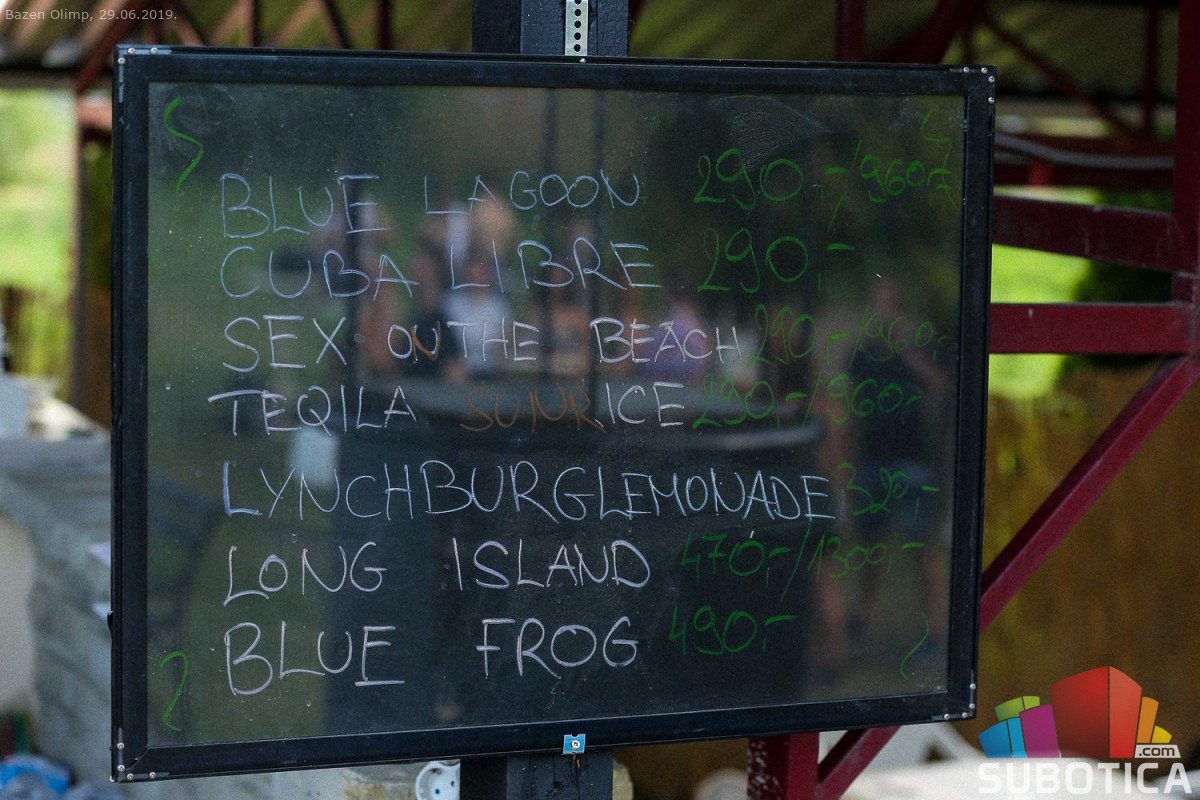 Bazen Olimp, 29.06.2019.
BLUE LAGOON 290,-/960,-
CUBA LIBRE 290,-
SEX ON THE BEACH 290,-/960,-
TEQILA SUNRICE 290,-/960,-
LYNCHBURG LEMONADE 320,-
LONG ISLAND 470,-/1300,-
BLUE FROG 490,-
.com
SUBOTICA